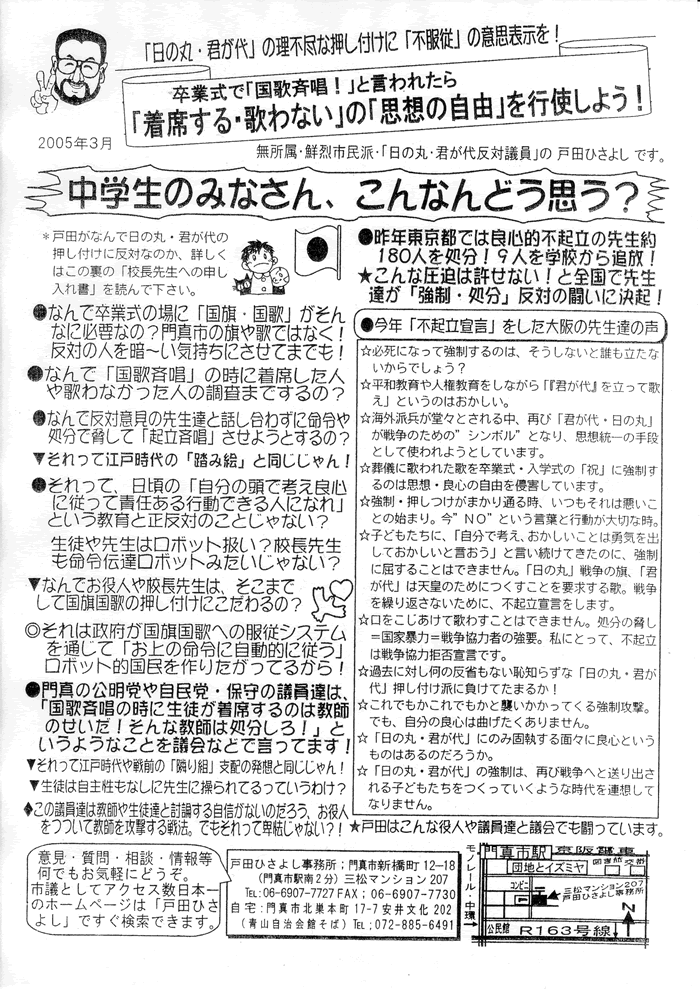 「日の丸・君が代」の理不尽な押し付けに「不服従」の意思表示を!
卒業式で「国歌斉唱!」と言われたら
「着席する・歌わない」の「思想の自由」を行使しよう!
2005年3月
無所属・鮮烈市民派・「日の丸・君が代反対議員」の 戸田ひさよし です。
中学生のみなさん、こんなんどう思う?
*戸田がなんで日の丸・君が代の
押し付けに反対なのか、詳しく
はこの裏の「校長先生への申し
入れ書」を読んで下さい。
●なんで卒業式の場に「国旗・国歌」がそん
なに必要なの?門真市の旗や歌ではなく!
反対の人を暗〜い気持ちにさせてまでも!
●なんで「国歌斉唱」の時に着席した人
や歌わなかった人の調査までするの?
●なんで反対意見の先生達と話し合わずに命令や
処分で脅して「起立斉唱」させようとするの?
▼それって江戸時代の「踏み絵」と同じじゃん!
●それって、日頃の「自分の頭で考え良心
に従って責任ある行動できる人になれ」
という教育と正反対のことじゃない?
生徒や先生はロボット扱い?校長先生
も命令伝達ロボットみたいじゃない?
▼なんでお役人や校長先生は、そこまで
して国旗国歌の押し付けにこだわるの?
◎それは政府が国旗国歌への服従システム
を通じて「お上の命令に自動的に従う」
ロボット的国民を作りたがってるから!
●門真の公明党や自民党・保守の議員達は、
「国歌斉唱の時に生徒が着席するのは教師
のせいだ!そんな教師は処分しろ!」と
いうようなことを議会などで言ってます!
▼それって江戸時代や戦前の「隣り組」支配の発想と同じじゃん!
▼生徒は自主性もなしに先生に操られてるっていうわけ?
◆この議員達は教師や生徒達と討論する自信がないのだろう、お役人
をつついて教師を攻撃する戦法。でもそれって卑怯じゃない?!
●昨年東京都では良心的不起立の先生約
180人を処分!9人を学校から追放!
★こんな圧迫は許せない!と全国で先生
達が「強制・処分」反対の闘いに決起!
●今年「不起立宣言」をした大阪の先生達の声
☆必死になって強制するのは、そうしないと誰も立たな
いからでしょう?
☆平和教育や人権教育をしながら「『君が代』を立って歌
え」というのはおかしい。
☆海外派兵が堂々とされる中、再び「君が代・日の丸」
が戦争のための”シンボル”となり、思想統一の手段
として使われようとしています。
☆葬儀に歌われた歌を卒業式・入学式の「祝」に強制す
るのは思想・良心の自由を侵害しています。
☆強制・押しつけがまかり通る時、いつもそれは悪いこ
との始まり。今”NO”という言葉と行動が大切な時。
☆子どもたちに、「自分で考え、おかしいことは勇気を出
しておかしいと言おう」と言い続けてきたのに、強制
に屈することはできません。「日の丸」戦争の旗、「君
が代」は天皇のためにつくすことを要求する歌。戦争
を繰り返さないために、不起立宣言をします。
☆口をこじあけて歌わすことはできません。処分の脅し
=国家暴力=戦争協力者の強要。私にとって、不起立
は戦争協力拒否宣言です。
☆過去に対し何の反省もない恥知らずな「日の丸・君が
代」押し付け派に負けてたまるか!
☆これでもかこれでもかと襲いかかってくる強制攻撃。
でも、自分の良心は曲げたくありません。
☆「日の丸・君が代」にのみ固執する面々に良心という
ものはあるのだろうか。
☆「日の丸・君が代」の強制は、再び戦争へと送り出さ
れる子どもたちをつくっていくような時代を連想して
なりません。
★戸田はこんな役人や議員達と議会でも闘っています。
意見・質問・相談・情報等
何でもお気軽にどうぞ。
市議としてアクセス数日本一
のホームページは「戸田ひさ
よし」ですぐ検索できます。
戸田ひさよし事務所;門真市新橋町12-18
(門真市駅南2分)三松マンション207
TEL:06-6907-7727 FAX;06-6907-7730
自宅:門真市北巣本町17-7安井文化202
(青山自治会館そば)TEL;072-885-6491
モノレール・中環
門真市駅
京阪電車
団地とイズミヤ
図書館
交番
コンビニ
三松マンション207
戸田ひさよし事務所
N
公民館
R163号線